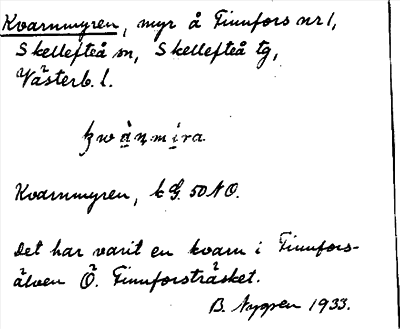 Kvarnmyren, myr å Finnfors nr 1,
Skellefteå sn, Skellefteå tg,
Västerb. l.
Kvarnmyren, k G. 50 NO.
Det har varit en kvarn i Finnfors-
älven Ö. Finnforsträsket.
B. Nygren 1933.